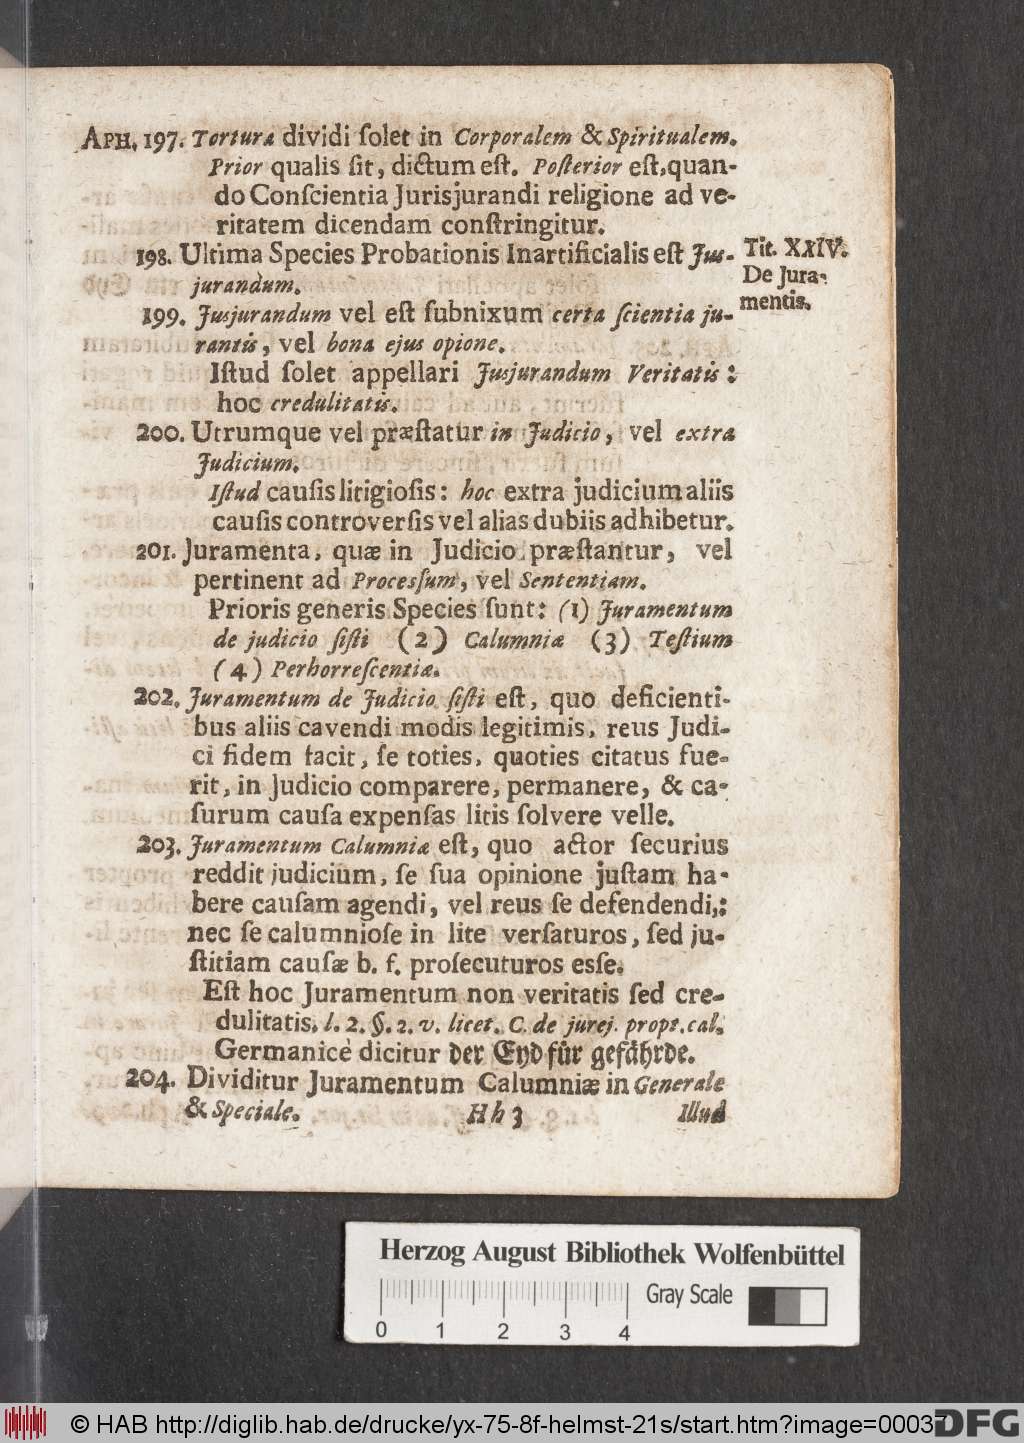 APH. 197. Tortura dividi ſolet in Corporalem & Spiritualem.
Prior qualis ſit, dictum eſt. Poſterior eſt, quan-
do Conſcientia Jurisjurandi religione ad ve-
ritatem dicendam conſtringitur.
198. Ultima Species Probationis Inartificialis eſt Jus-
jurandum.
Tit. XXIV.
De Jura-
mentis.
199. Jusjurandum vel eſt ſubnixum certa ſcientia ju-
rantis, vel bona ejus opione.
Iſtud ſolet appellari Jusjurandum Veritatis:
hoc credulitatis.
200. Utrumque vel præſtatur in Judicio, vel extra
Judicium.
Iſtud cauſis litigioſis: hoc extra judicium aliis
cauſis controverſis vel alias dubiis adhibetur.
201. Juramenta, quæ in Judicio præſtantur, vel
pertinent ad Proceſſum, vel Sententiam.
Prioris generis Species ſunt: (1) Juramentum
de judicio ſiſti (2) Calumniæ (3) Teſtium
(4) Perhorreſcentiæ.
202. Juramentum de Judicio ſiſti eſt, quo deficienti-
bus aliis cavendi modis legitimis, reus Judi-
ci fidem facit, ſe toties, quoties citatus fue-
rit, in Judicio comparere, permanere, & ca-
ſurum cauſa expenſas litis ſolvere velle.
203. Juramentum Calumniæ eſt, quo actor ſecurius
reddit judicium, ſe ſua opinione juſtam ha-
bere cauſam agendi, vel reus ſe defendendi,:
nec ſe calumnioſe in lite verſaturos, ſed ju-
ſtitiam cauſæ b. f. proſecuturos eſſe.
Eſt hoc Juramentum non veritatis ſed cre-
dulitatis. l. 2. §. 2. v. licet. C. de jurej. propt. cal.
Germanicè dicitur der Eyd für gefährde.
204. Dividitur Juramentum Calumniæ in Generale
& Speciale.
Hh 3
Illud
Herzog August Bibliothek Wolfenbüttel
Gray Scale
0 1 2 3 4
© HAB http://diglib.hab.de/drucke/yx-75-8f-helmst-21s/start.htm?image=00037
DFG